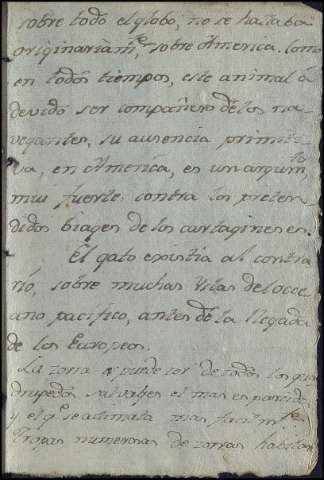 sobre todo el globo, no se hallaba
originariam.te sobre America. Como
en todos tiempos, este animal á
devido ser compañero de los na-
vegantes, su ausencia primiti-
va, en America, es un argum.to
mui fuerte contra los preten-
didos biages de los cartagineses.
El gato existia al contra
rió, sobre muchas Yslas del oce
ano pacifico, antes de la llegada
de los Europeos.
La zorra es puede ser de todos los qua
drupedos salvages el mas esparcido
y el q.e se aclimata mas facilm.te
Tropas numerosas de zorras habitan